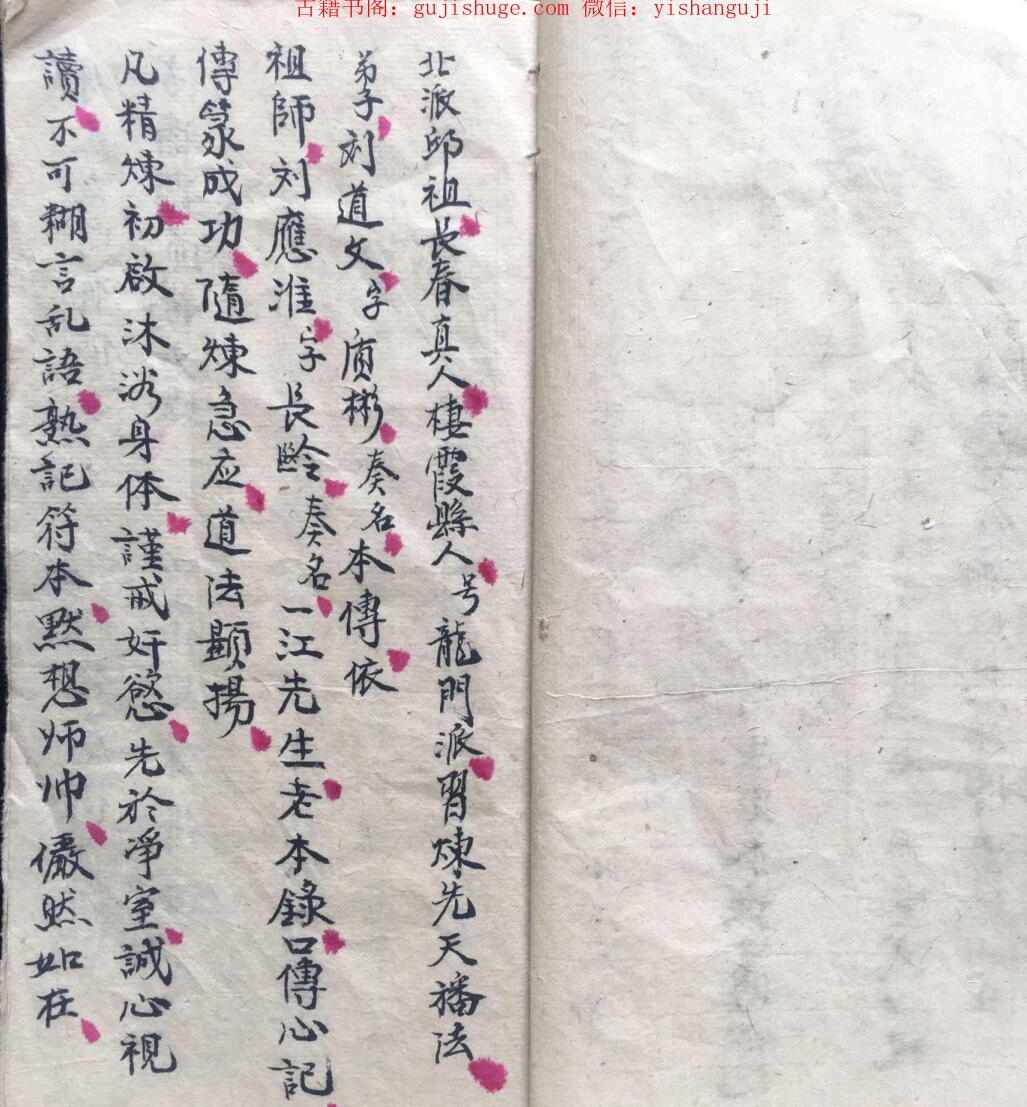 古籍书阁：gujishuge.com 微信：yishanguji
北派邱祖長春真人棲霞縣人号龍門派習煉先天播法
弟子刘道文字质彬奏名本傳依
祖師刘應淮字長齡奏名一江先生老本錄口傳心記
傳篆成功隨煉急应道法顯揚
凡精煉初啟沐浴身体謹戒奸慾先於淨室誠心視
讀不可糊言乱語熟記符本默想师帅儼然如在